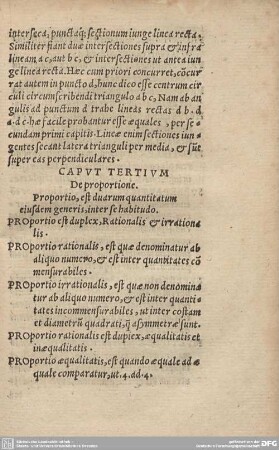 interseca, punctaq́; sectionum iunge linea recta.
Similiter fiant duæ intersectiones supra & infra
lineam, a c, aut b c, & intersectiones ut antea iun
ge linea recta. Hæc cum priori concurret, cõcur
rat autem in puncto d, hunc dico esse centrum cir
culi circumscribendi triangulo a b c, Nam ab an
gulis ad punctum d trabe lineas rectas d b. d
a. d c. hæ facile probantur esse æquales, per se
cundam primi capitis. Lineæ enim sectiones iun
gentes secant latera trianguli per media, & sũt
super eas perpendiculares.
CAPVT TERTIVM
De proportione.
Proportio, est duarum quantitatum
eiusdem generis, inter se habitudo.
PROportio est duplex, Rationalis & irrationa
lis.
PROportio rationalis, est quæ denominatur ab
aliquo numero, & est inter quantitates cõ
mensurabiles.
PROportio irrationalis, est quæ non denomina
tur ab aliquo numero, & est inter quanti-
tates incommensurabiles, ut inter costam
et diametrũ quadrati, q̃ asymmetræ sunt.
PROportio rationalis est duplex, æqualitatis et
inæqualitatis.
PROportio æqualitatis, est quando æquale ad æ
quale comparatur, ut. 4. ad. 4.